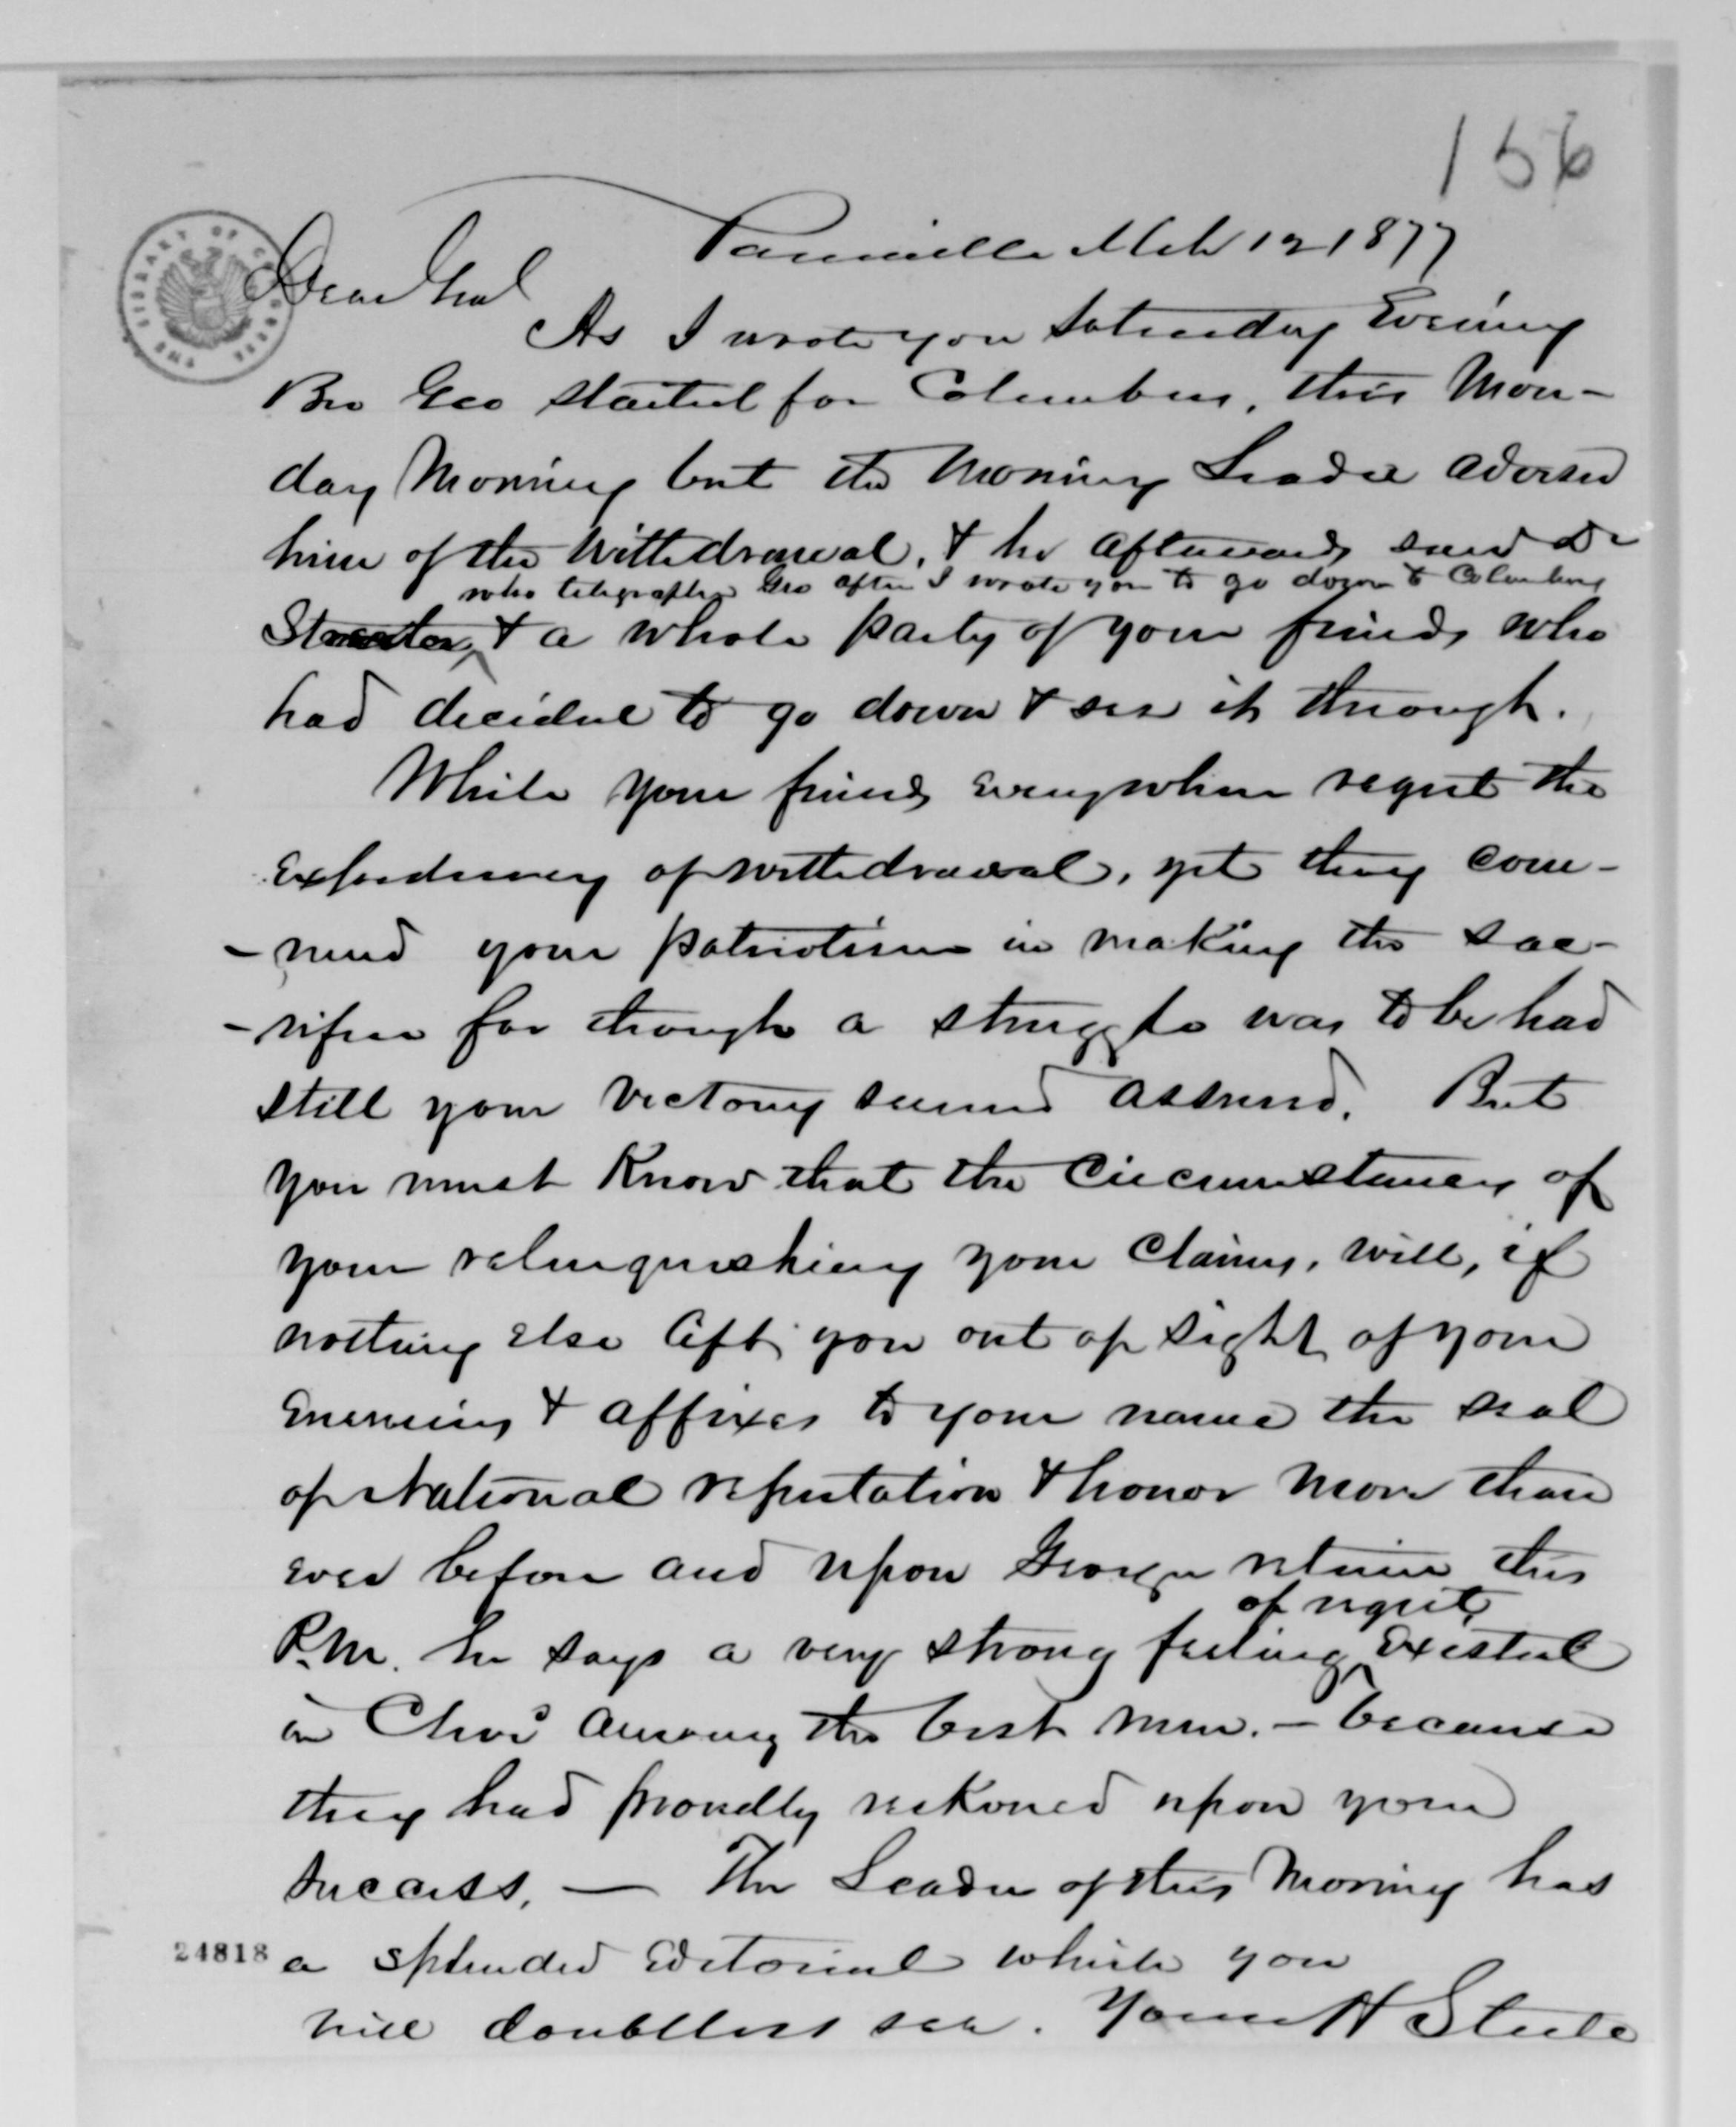 156
Painesville Mch 12 1877
Dear Genl
As I wrote you Saturday Evening
Bro Geo started for Columbus, this Mon-
day Morning but the Morning Leader advised
him of the Withdrawal, & he afterwards saw Dr
who telegraphed Geo after I wrote you to go down to Columbus
Streator, & a whole party of your friends who
had decided to go down & see it through.
While your friends everywhere regret the
expediency of withdrawal, yet they com-
-mend your patriotism in making the sac-
-rifice for though a struggle was to be had
still your victory seemed assured. But
you must Know that the Circumstances of
your relinquishing your Claims, will, if
nothing else lift you out of sight of your
Enemies & affixes to your name the seal
of National reputation & honor more than
ever before and upon George return this
P.M. he says a very strong feeling existed
of regret
in Clevd among the best men. — because
they had proudly reckoned upon your
success. — The Leader of this Morning has
24818
a splended Editorial which you
will doubtless see. Yours H Steele
THE LIBRARY OF CONGRESS